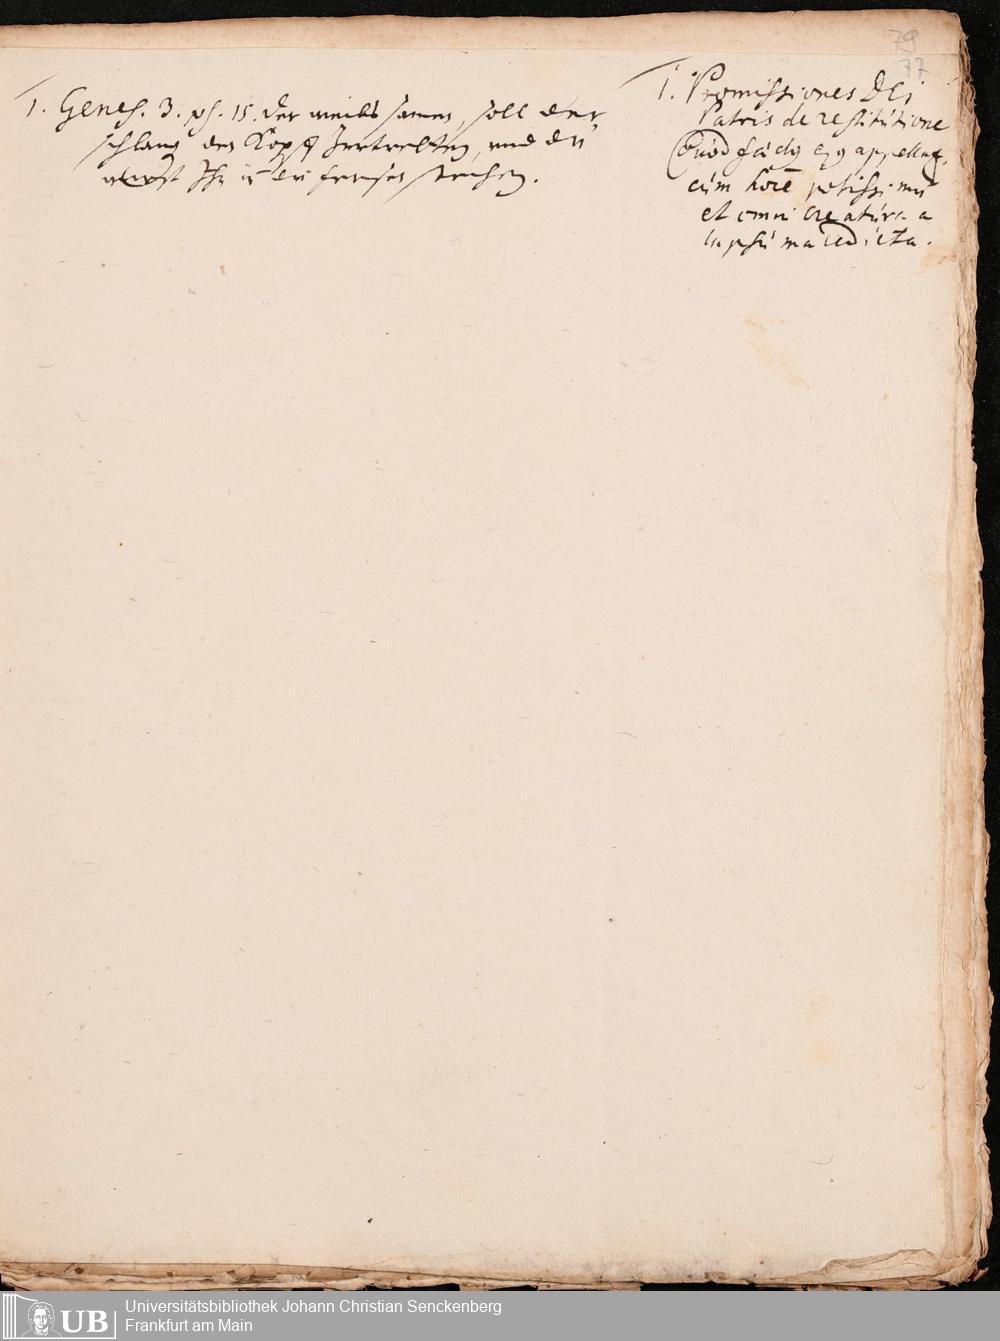 79
77
1. Genes. 3. ps. 15. der weibs samen, soll der
schlang den Kopff Zertretten, und du
wirst Ihn in die fersen stechen.
1. Promissiones DEi
Patris de restitutione
Quod
cum potissimum
et omni creatura a
lapsu maledicta.
Universitätsbibliothek Johann Christian Senckenberg
Frankfurt am Main
UB